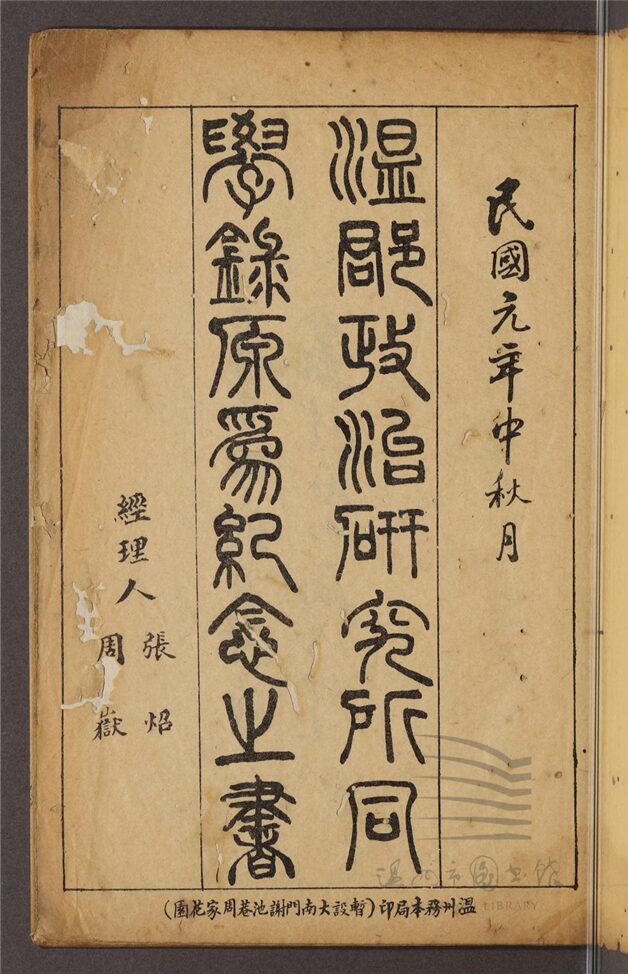 民國元年中秋月
溫郡政治研究所同
學錄原為紀念之書
經理人
張炤
周嶽
溫州務本局印(暫設大南門謝池巷周家花園)
温州市图书馆
LIBRARY